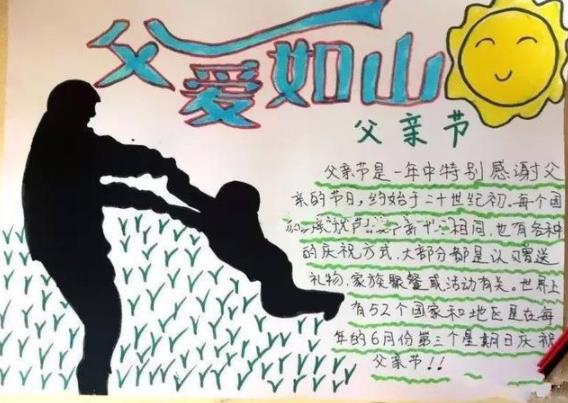 父爱如山
父亲节
父亲节是一年中特别感谢父
亲的节日,约始于二十世纪初.每个国
相同,也有各种
的庆祝方式,大部分都是认赠送
礼物,家族聚餐或活动有关。世界上
有52个国家和地区是在每
年的6月份第三个星期日庆祝
父亲节!!